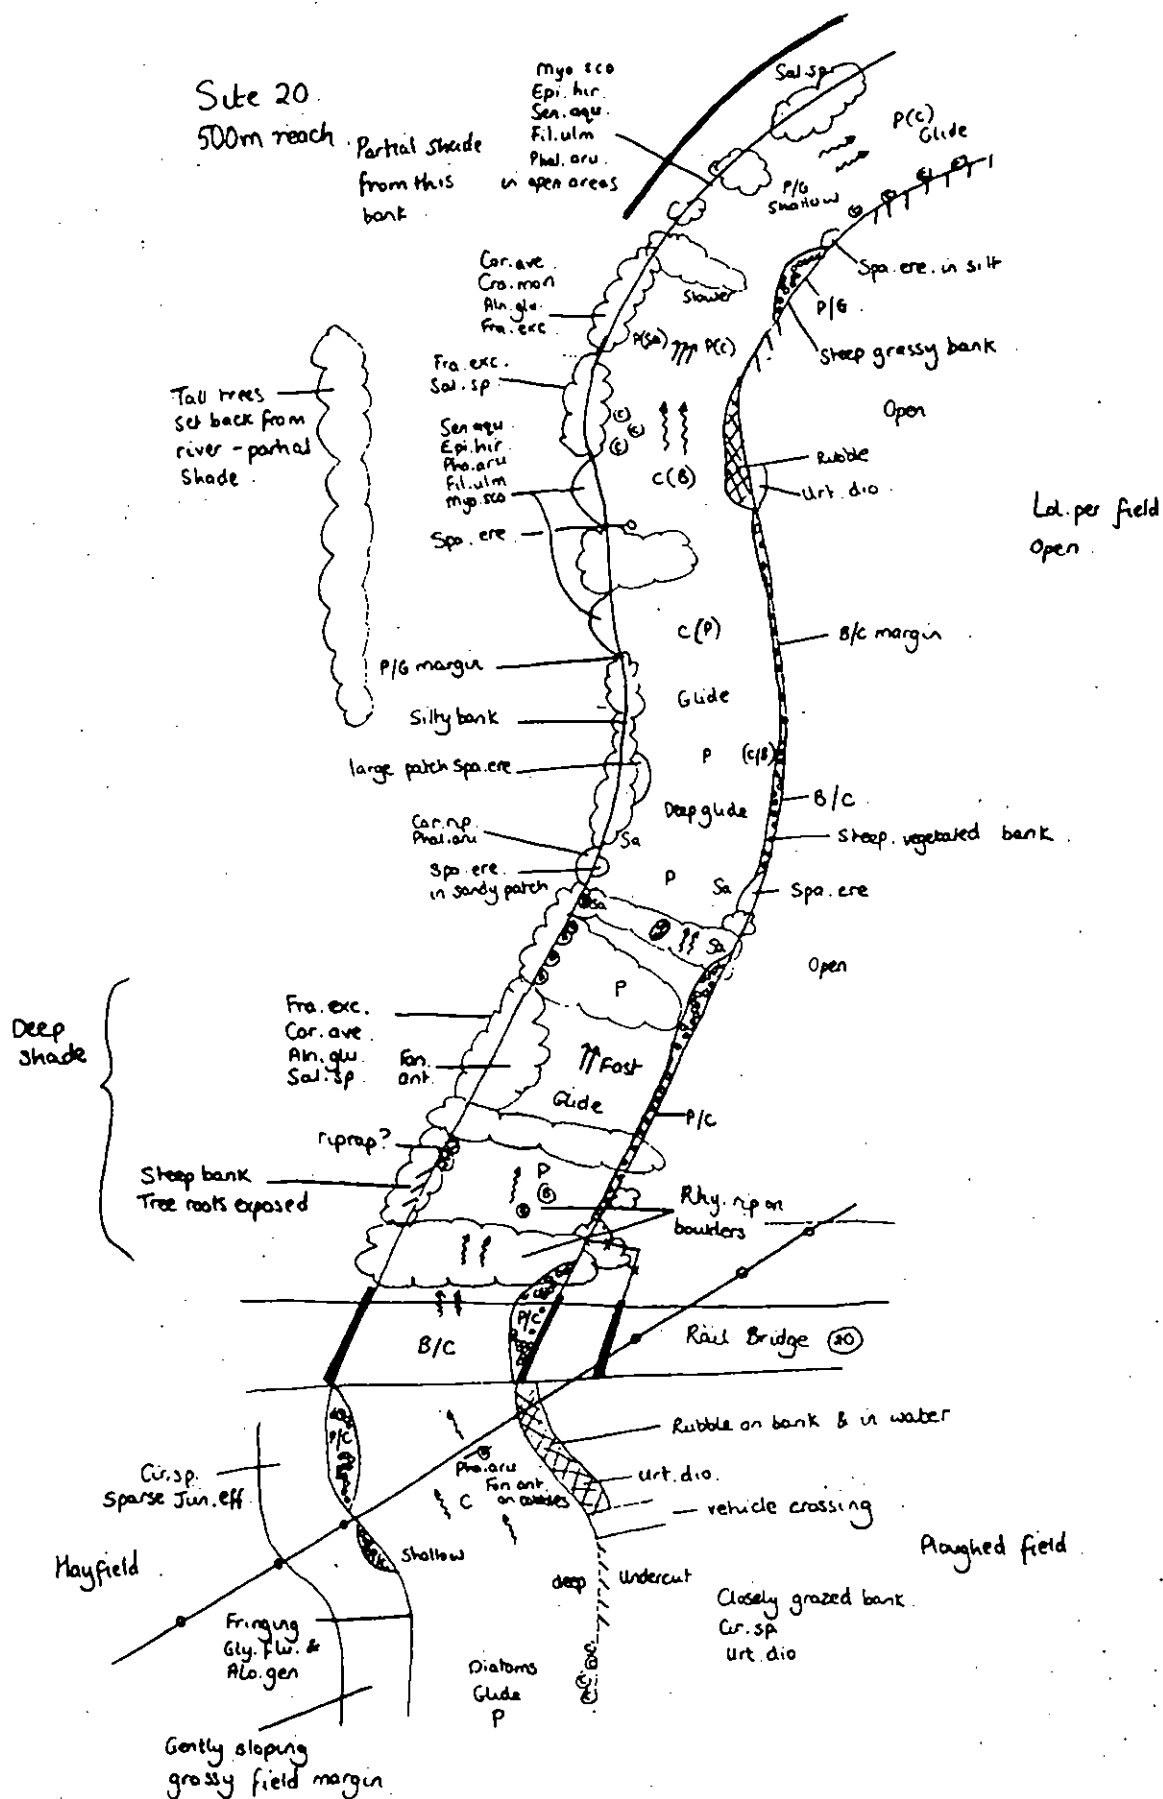 Site 20
500m reach
Partial shade
from this
bank
Myo sco
Epi. hir.
Sen. aqu.
Fil. ulm
Phal. aru.
in open areas
Sal. sp.
P(C)
Glide
P/G
Shallow
Spa. ere. in silt
P/G
Steep grassy bank
Cor. ave.
Cra. mon
Aln. glu.
Fra. exc.
Slower
P(Sa)
P(C)
Fra. exc.
Sal. sp.
Open
Tall trees
set back from
river - partial
Shade
Sen aqu
Epi. hir.
Pha. aru
Fil. ulm
Myo. sco
C
C
C
C(B)
Rubble
Urt. dio
Lol. per field
Open
Spa. ere
C(P)
B/C margin
P/G margin
Glide
Silty bank
P
(C/B)
large patch Spa. ere
Deep glide
B/C
Car. rip.
Phal. aru
Sa
Steep. vegetated bank
Spa. ere.
in sandy patch
P
Sa
Spa. ere
Sa
Sa
Open
P
Deep
Shade
Fra. exc.
Cor. ave
Aln. glu.
Sal. sp.
Fon.
ant.
Fast
Glide
P/C
riprap?
Steep bank
Tree roots exposed
P
B
Rhy. rip on
boulders
P/C
B/C
Rail Bridge 20
P/C
Rubble on bank & in water
Cir. sp.
Sparse Jun. eff
Pha. aru
Fon ant
on cobbles
C
Urt. dio.
vehicle crossing
Hayfield
Shallow
Ploughed field
deep
Undercut
Closely grazed bank
Cir. sp
Urt. dio
Fringing
Gly. flu. &
Alo. gen
Diatoms
Glide
P
Gently sloping
grassy field margin